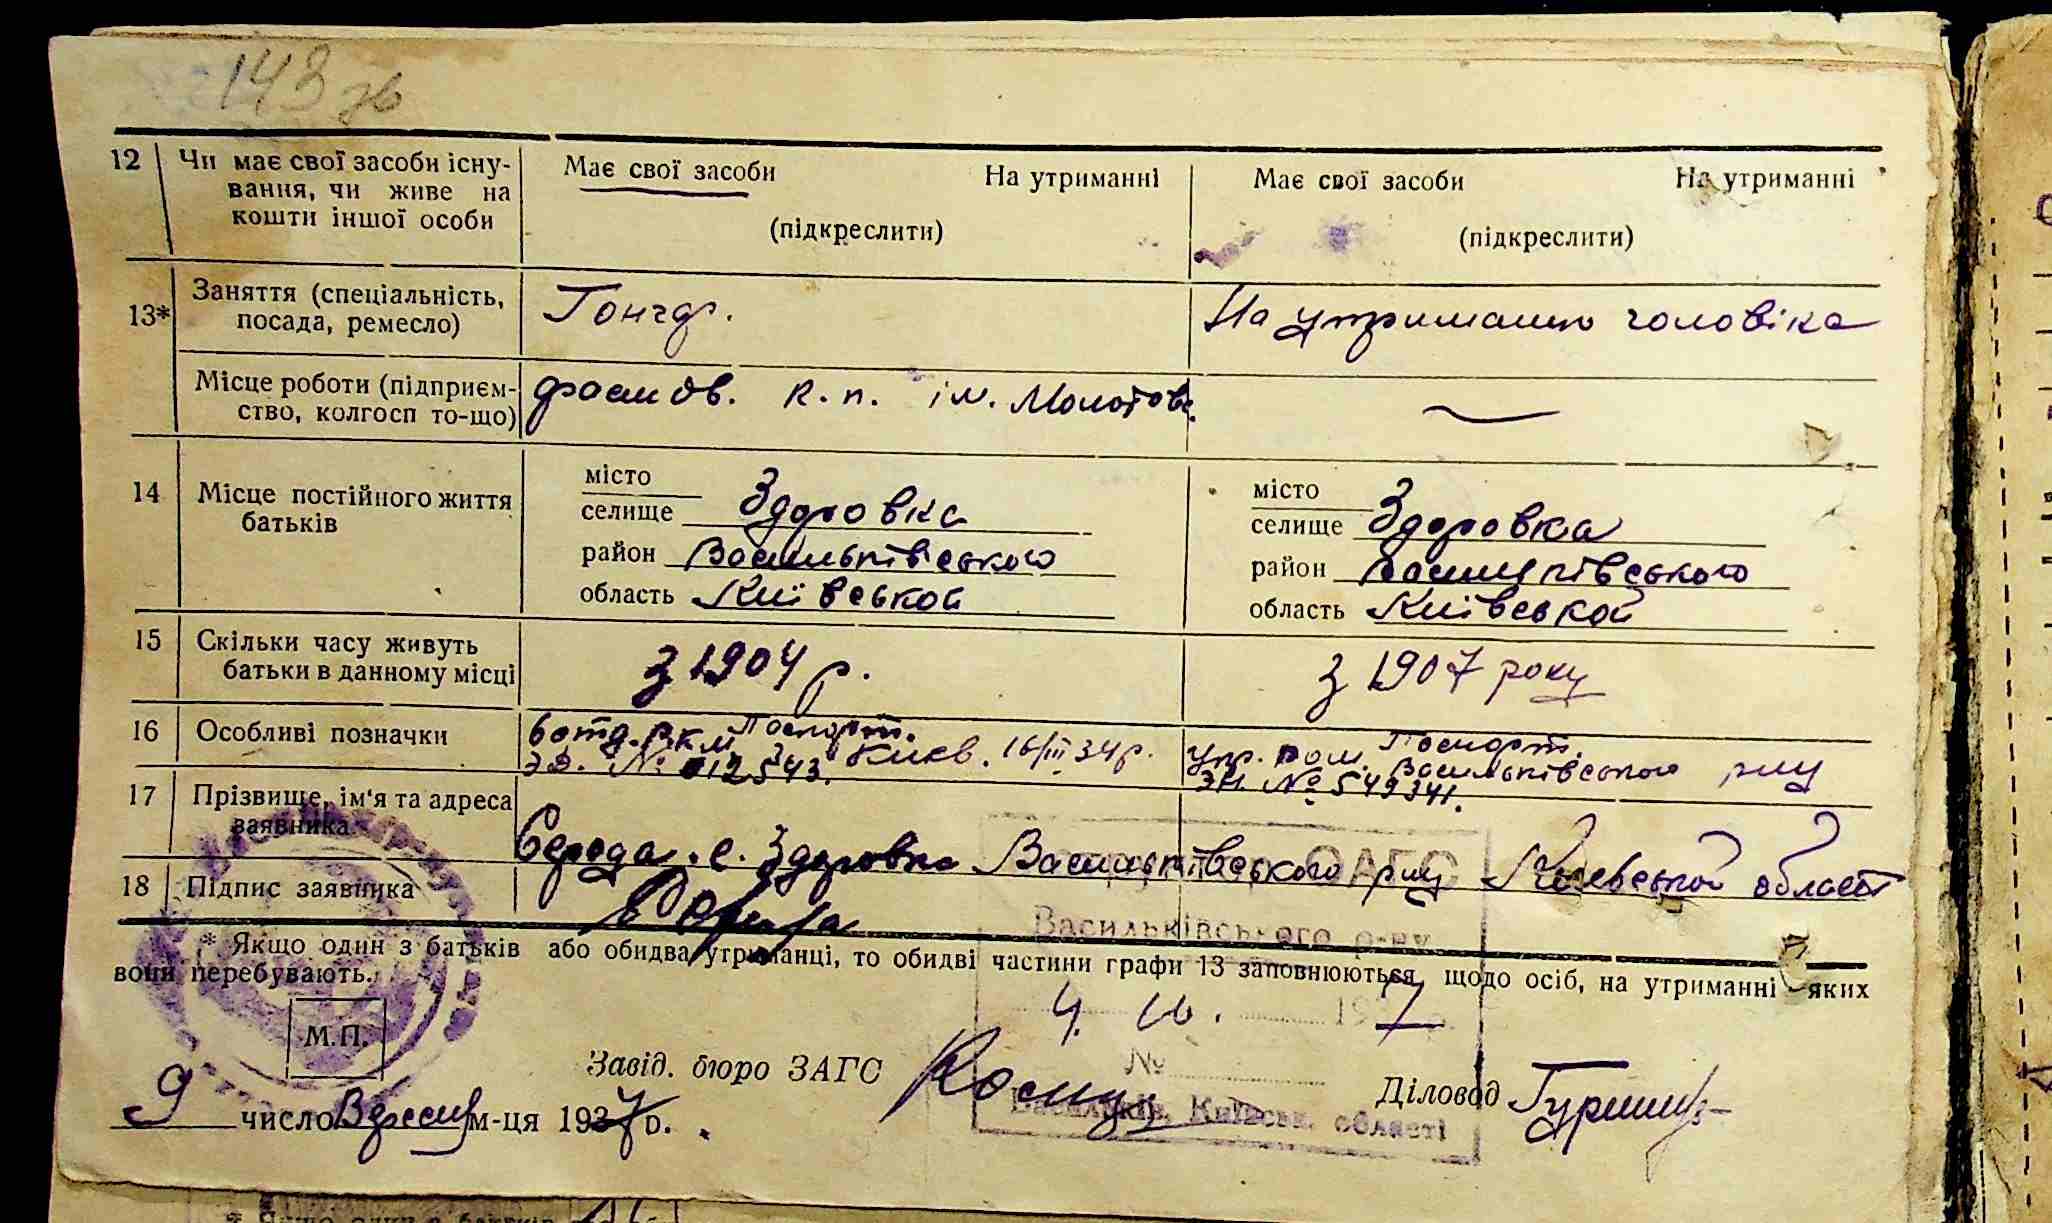 143 зв
12 Чи має свої засоби існу- Має свої засоби На утриманні Має свої засоби На утриманні
вання, чи живе на
кошти іншої особи (підкреслити) (підкреслити)
13* Заняття (спеціальність, Гончар. На утриманню чоловіка
посада, ремесло)
Місце роботи (підприєм- к.п. ім. Молотова.
ство, колгосп то-що)
14 Місце постійного життя місто місто
батьків селище Здоровка селище Здоровка
район Васильківського район Васильківського
область Київської область Київської
15 Скільки часу живуть з 1904 р. з 1907 року
батьки в данному місці
16 Особливі позначки Паспорт. Паспорт.
6 отд. РКМ Київ. 16/III 34 р. Упр. Васильківського р-ну
№ 012543. № 549341.
17 Прізвище, ім'я та адреса
заявника Середа. с. Здоровка Васильківського р-ну Київської області
18 Підпис заявника Середа
* Якщо один з батьків або обидва утриманці, то обидві частини графи 13 заповнюються, щодо осіб, на утриманні яких
вони перебувають.
ЗАГС
Васильківського р-ну
1937
№
Васильків, Київськ. області
М.П.
Завід. бюро ЗАГС Діловод
9 число Вересня м-ця 1937 р.